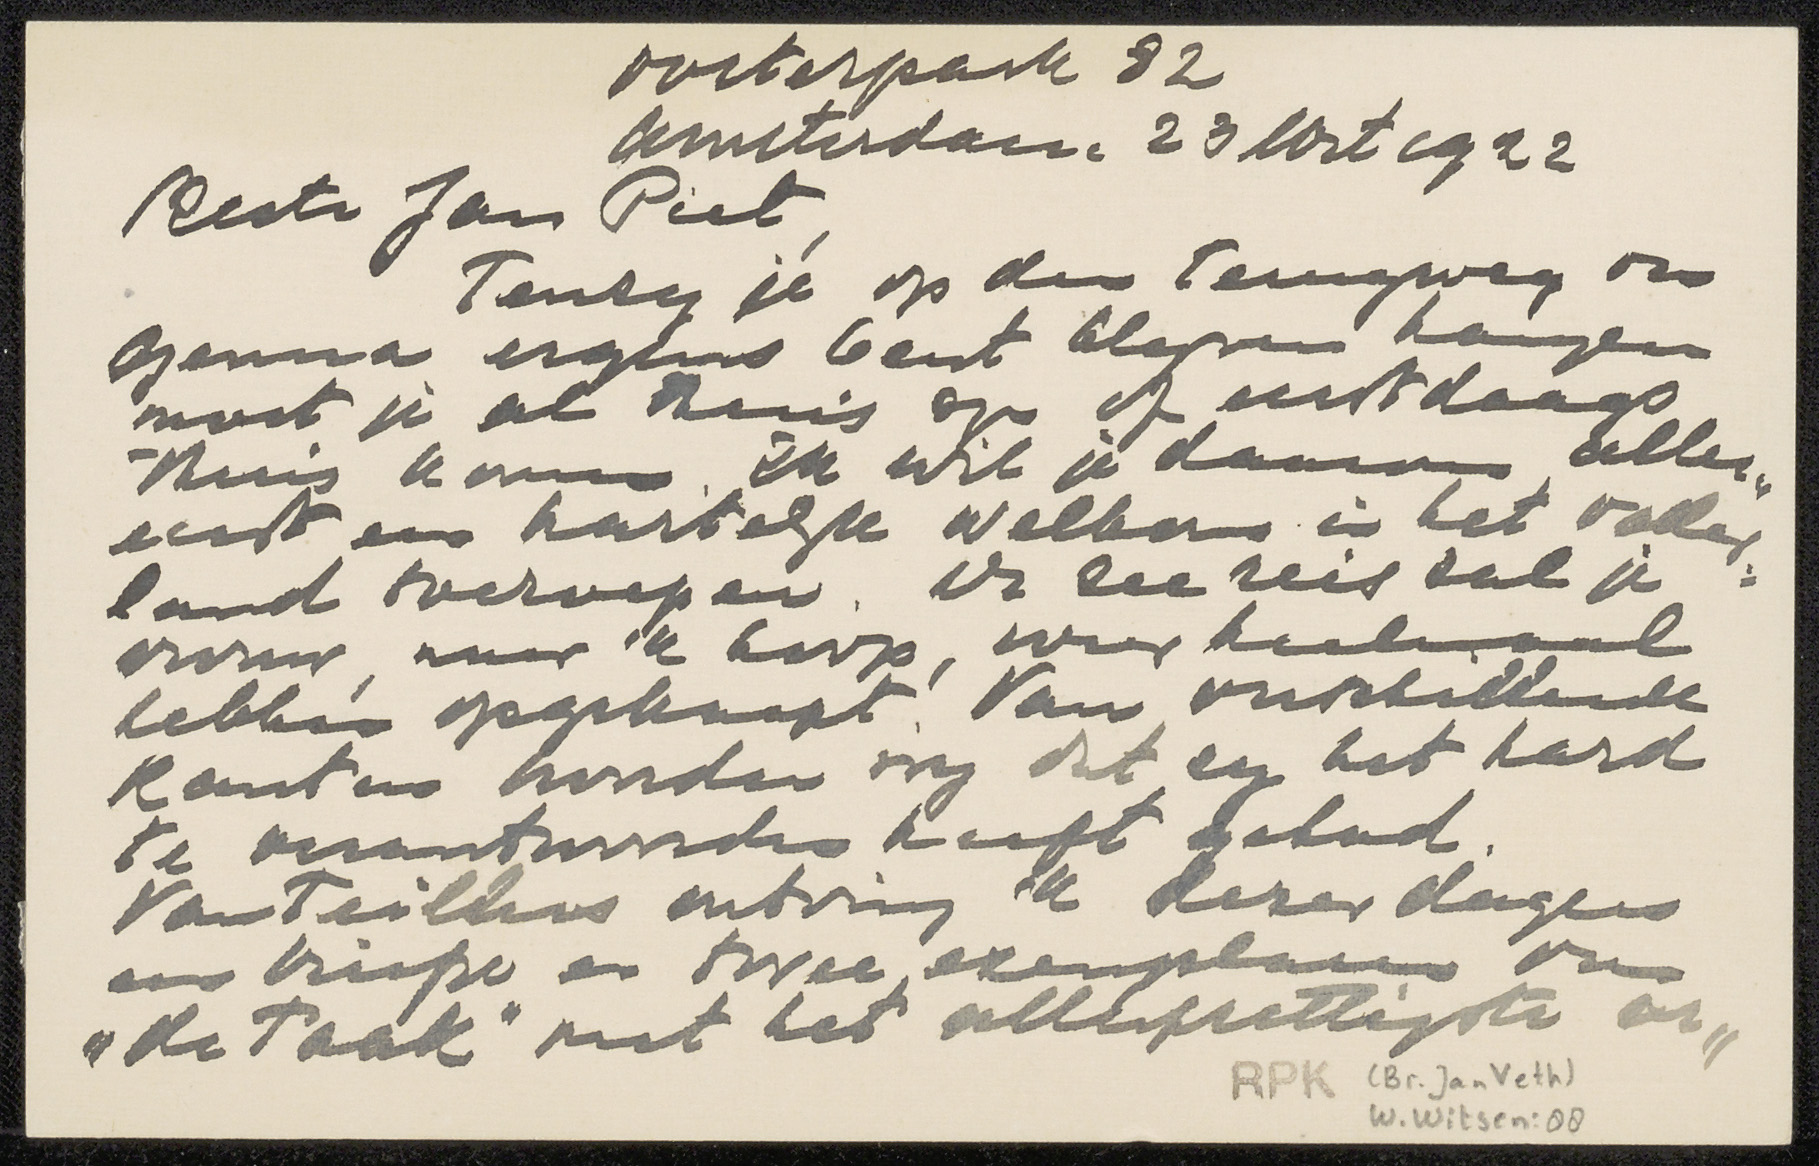 Oosterpark 82
Amsterdam. 23 Oct 1922
Beste Jan Piet,
Tenzy je op den terugweg om
Genua ergens bent blyven hangen
moet je al thuis zyn of eerstdaags
thuis komen. Ik wil je daarom aller„
eerst een hartelyk welkom in het vader„
land toeroepen. De zeereis zal je
vrouw, naar ik hoop, weer heelemaal
hebben opgeknapt. Van verschillende
kanten hoorden wy dat zy het hard
te verantwoorden heeft gehad.
Van Teillers ontving ik dezer dagen
een briefje en twee exemplaren van
„de Taak" met het allerprettigste ar„
RPK (Br. Jan Veth)
W. Witsen: 88